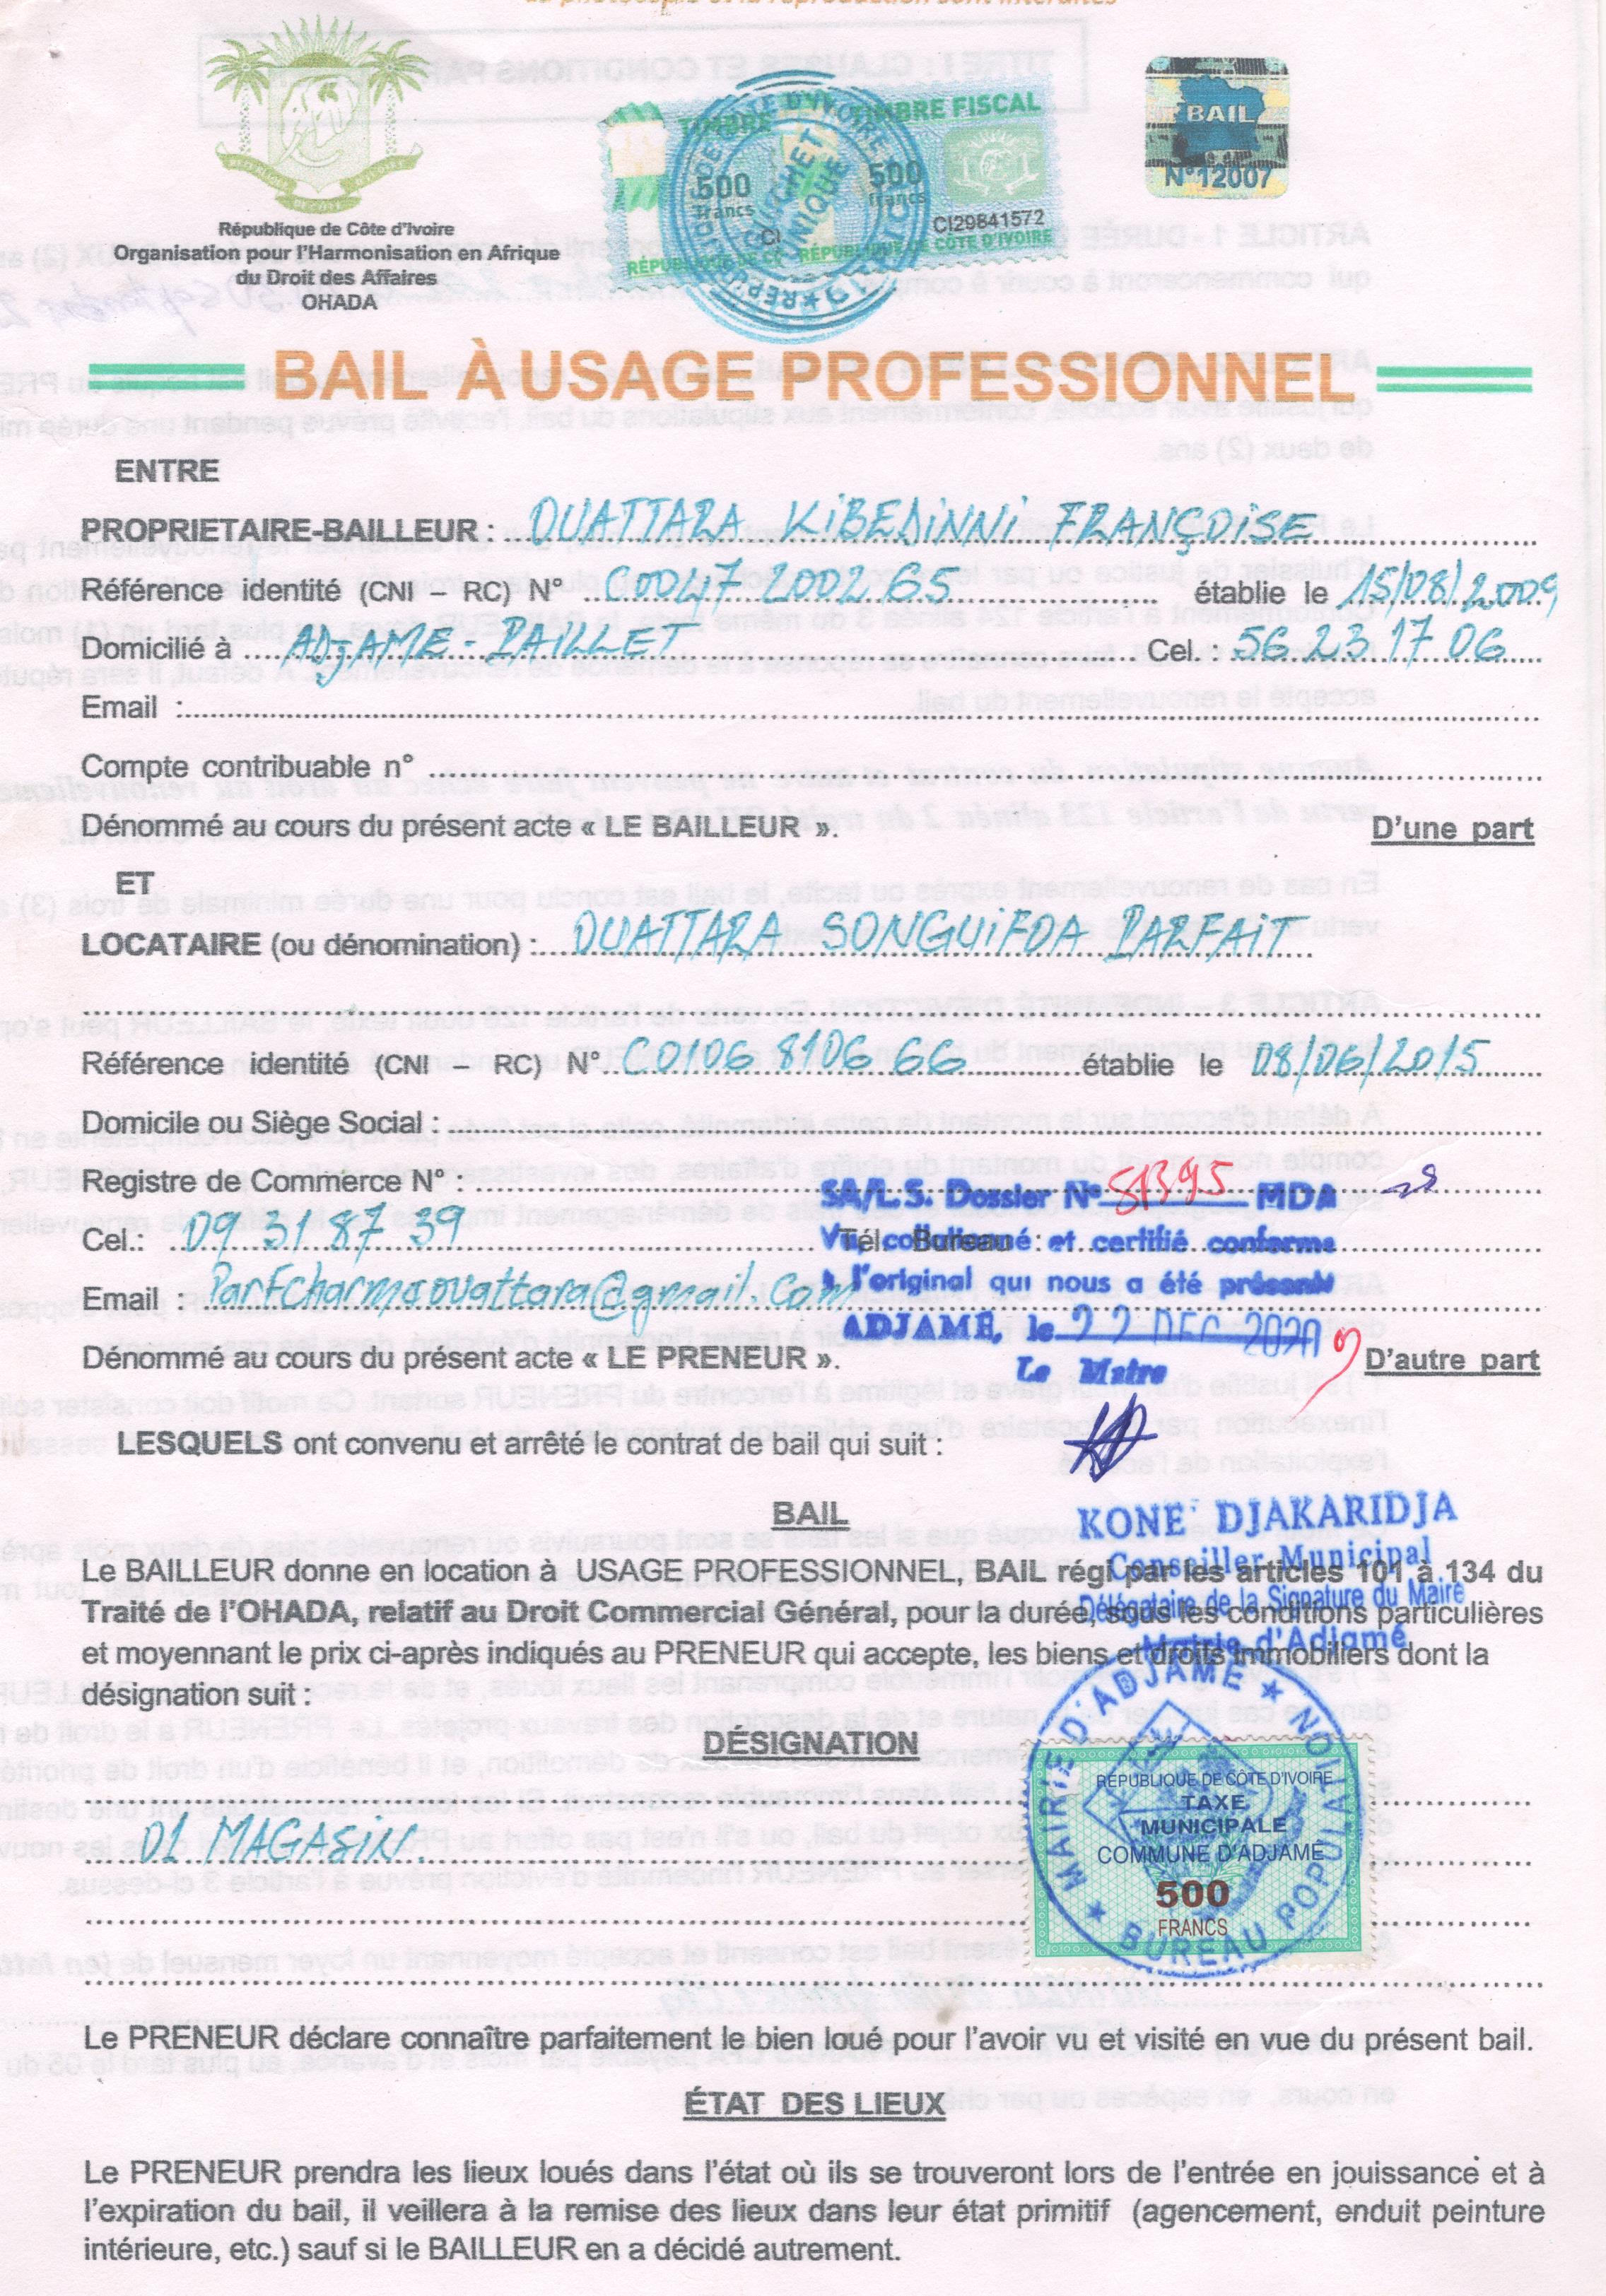 La photocopie et la reproduction sont interdites
République de Côte d'Ivoire
Organisation pour l'Harmonisation en Afrique
du Droit des Affaires
OHADA
TIMBRE FISCAL
500
francs
500
francs
CI29841572
RÉPUBLIQUE DE CÔTE D'IVOIRE
GUICHET UNIQUE
BAIL
N°12007
BAIL À USAGE PROFESSIONNEL
ENTRE
PROPRIETAIRE-BAILLEUR : OUATTARA KIBEDINNI FRANÇOISE
Référence identité (CNI – RC) N° C0047 2002 65 établie le 15/08/2009
Domicilié à ADJAME - PAILLET Cel. : 56 23 17 06
Email :
Compte contribuable n°
Dénommé au cours du présent acte « LE BAILLEUR ». D'une part
ET
LOCATAIRE (ou dénomination) : OUATTARA SONGUIFOA PARFAIT
Référence identité (CNI – RC) N° C0106 8106 66 établie le 08/06/2015
Domicile ou Siège Social :
Registre de Commerce N° :
SA/L.S. Dossier N° 51395 MDA
Cel.: 09 31 87 39 Tél. Bureau :
Vu, collationné et certifié conforme
à l'original qui nous a été présenté
Email : Parfcharmaouattara@gmail.com
ADJAMÉ, le 22 DEC 2020
Le Maire
Dénommé au cours du présent acte « LE PRENEUR ». D'autre part
LESQUELS ont convenu et arrêté le contrat de bail qui suit :
BAIL
KONE DJAKARIDJA
Conseiller Municipal
Délégataire de la Signature du Maire
Mairie d'Adjamé
Le BAILLEUR donne en location à USAGE PROFESSIONNEL, BAIL régi par les articles 101 à 134 du
Traité de l'OHADA, relatif au Droit Commercial Général, pour la durée, sous les conditions particulières
et moyennant le prix ci-après indiqués au PRENEUR qui accepte, les biens et droits immobiliers dont la
désignation suit :
DÉSIGNATION
01 MAGASIN.
MAIRIE D'ADJAME ★ POPULATION ★ BUREAU
RÉPUBLIQUE DE CÔTE D'IVOIRE
TAXE
MUNICIPALE
COMMUNE D'ADJAMÉ
500
FRANCS
Le PRENEUR déclare connaître parfaitement le bien loué pour l'avoir vu et visité en vue du présent bail.
ÉTAT DES LIEUX
Le PRENEUR prendra les lieux loués dans l'état où ils se trouveront lors de l'entrée en jouissance et à
l'expiration du bail, il veillera à la remise des lieux dans leur état primitif (agencement, enduit peinture
intérieure, etc.) sauf si le BAILLEUR en a décidé autrement.